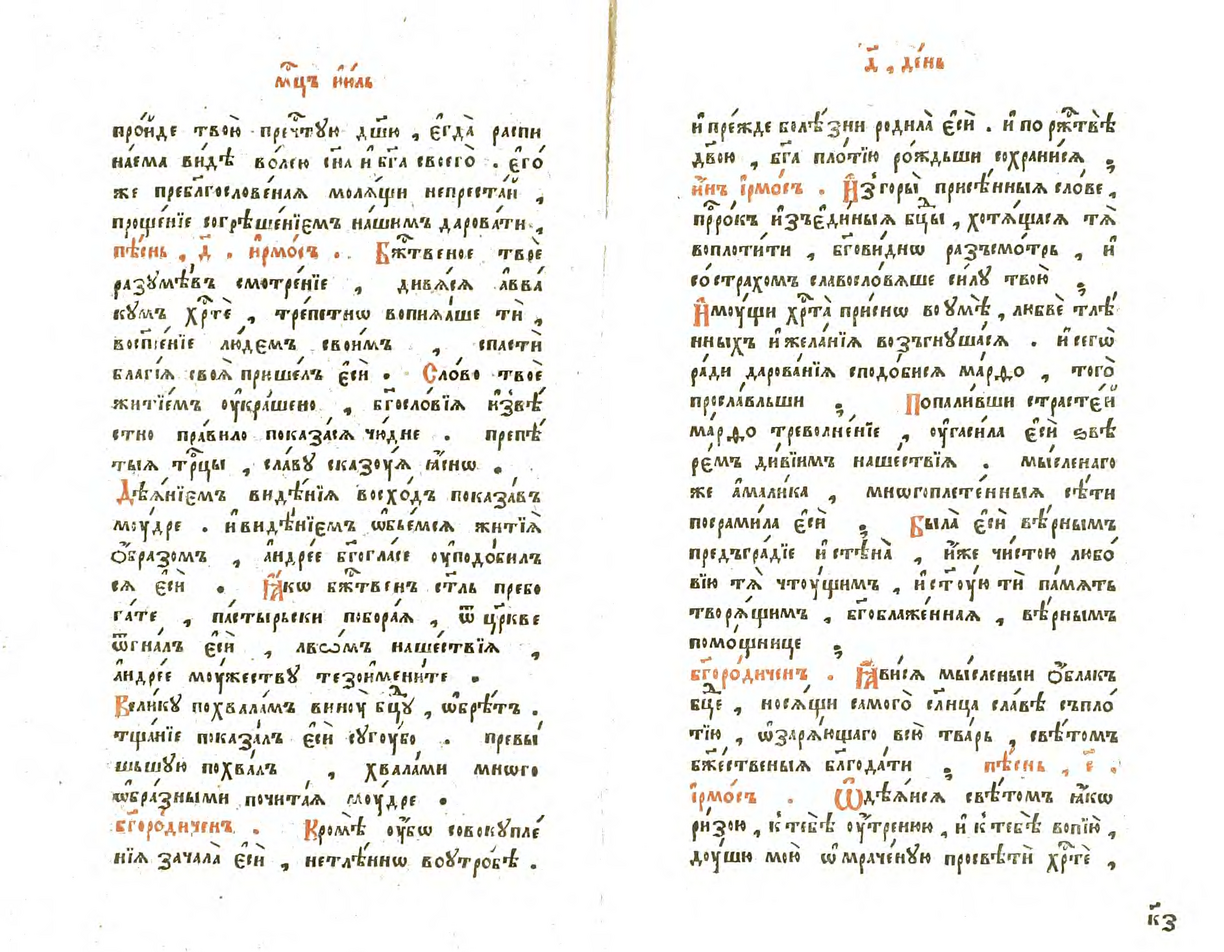 мⷭ҇цъ і҆ю́ль
про́йде твою̀ пречⷭ҇тую дш҃ю , є҆гда̀ распи
на́ема ви́дѣ во́лею сн҃а и҆ бг҃а своего̀ . є҆го́
же пребл҃гослове́ная моля́щи непреста́й ,
проще́нїе согрѣше́нїємъ на́шимъ дарова́ти ,
пѣ́снь , д҃ . і҆рмо́съ . Бж҃твеное твоѐ
разꙋмѣ́въ смотре́нїе , дивя́ся а҆вва
кꙋмъ хрⷭ҇тѐ , тре́петнѡ вопия́ше ти̂ ,
воспⷭ҇е́нїе лю́демъ свои́мъ , спастѝ
благі́я своя̀ прише́лъ є҆сѝ . Сло́во твоѐ
житїе́мъ ᲂу҆кра́шено , бг҃осло́вїя и҆звѣ́
стно пра́вило показа́ся чю́дне . препѣ́
тыя трⷪ҇цы , сла́вꙋ сказᲂу́я ꙗ҆́снѡ .
Дѣя́нїемъ ви́дѣнїя восхо́дъ показа́въ
мᲂу́дре . и҆ ви́дѣнїемъ ѡ҆бье́мся житїя̀
ѻ҆́бразомъ , а҆ндре́е бг҃огла́се ᲂу҆подо́билъ
ся є҆сѝ . Ꙗ҆́кѡ бж҃твенъ ст҃ль пребо
га́те , па́стырьски побора́я , ѿ цр҃кве
ѿгна́лъ є҆сѝ , львѡ́мъ наше́ствїя ,
а҆ндре́е мᲂу́жествꙋ тезоимени́те .
Вели́кꙋ похвала́мъ винᲂу̀ бцⷣꙋ , ѡ҆брѣ́тъ .
тща́нїе показа́лъ є҆сѝ сꙋгꙋ́бо . превы́
шьшꙋю похва́лъ , хвала́ми мно́го
ѡ҆бра́зными почита́я мᲂу́дре .
бг҃оро́диченъ . Кромѣ̀ ᲂу҆́бѡ совокꙋпле́
нїя зачала̀ є҆сѝ , нетлѣ́ннѡ во ᲂутро́бѣ .
д҃ , де́нь
и҆ пре́жде болѣ́зни родила̀ є҆сѝ . и҆ по ржⷭ҇твѣ̀
дв҃ою , бг҃а пло́тїю ро́ждьши сохрани́ся ;
и҆́нъ і҆рмо́съ . И҆з̾ горы̀ присѣ́нныя сло́ве ,
прⷪ҇ро́къ и҆зъ є҆ди́ныя бцⷣы , хотя́щася тя̀
воплоти́ти , бг҃ови́днѡ разъсмо́трь , и҆
со стра́хомъ славосло́вяше си́лꙋ твою̀ ;
И҆мᲂу́щи хрⷭ҇та̀ при́снѡ во ᲂумѣ̀ , любвѐ тлѣ́
нныхъ и҆ жела́нїя возъгнꙋша́ся . и҆ сегѡ̀
ра́ди дарова́нїя сподо́бися ма́рѳо , того̀
просла́вльши ; Попали́вши страсте́й
ма́рѳо треволне́нїе , ᲂу҆гаси́ла є҆сѝ ѕвѣ
ре́мъ ди́вїимъ наше́ствїя . мы́сленаго
же а҆мали́ка , многоплете́нныя сѣ́ти
посрами́ла є҆сѝ ; Была̀ є҆сѝ вѣ́рнымъ
предъгра́дїе и҆ стѣна̀ , и҆́же чи́стою любо́
вїю тя̀ чтᲂу́щимъ , и҆ ст҃ᲂу́ю тѝ па́мять
творя́щимъ , бг҃облаже́нная , вѣ́рнымъ
помо́щнице ;
бг҃оро́диченъ . Ꙗ҆ви́ся мы́сленыи ѻ҆́блакъ
бцⷣе , нося́щи самого̀ сл҃нца сла́вѣ съ пло́
тїю , ѡ҆заря́ющаго всю̀ тва́рь , свѣ́томъ
бж҃ественыя бл҃года́ти ; пѣ́снь , є҃ .
і҆рмо́съ . Ѿдѣя́ися свѣ́томъ ꙗ҆́кѡ
ри́зою , к̾ тебѣ̀ ᲂу҆́тренюю , и҆ к̾ тебѣ̀ вопїю̀ ,
дᲂу́шю мою̀ ѡ҆мраче́нꙋю просвѣтѝ хрⷭ҇тѐ ,
к҃з